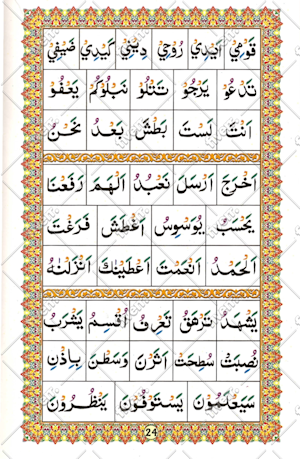 قَوْمِيْ اَيْدِيْ رُوْحِيْ دِيْنِيْ كَيْدِيْ ضَيْفِيْ
تَدْعُوْ يَرْجُوْ تَتْلُوْ نَبْلُوَكُمْ يَعْفُوْ
اَنْتَ لَسْتَ بَطْشَ بَعْدُ نَحْنُ
اَخْرَجَ اَرْسَلَ نَعْبُدُ اَلْهَمَ رَفَعْنَا
يَحْسَبُ يُوَسْوِسُ اَغْطَشَ فَرَغْتَ
اَلْحَمْدُ اَنْعَمْتَ اَعْطَيْنٰكَ اَنْزَلْنٰهُ
يَشْهَدُ تَرْهَقُ تَعْرِفُ اُقْسِمُ يَشْرَبُ
نُصِبَتْ سُطِحَتْ اَثَرْنَ وَسَطْنَ بِاِذْنِ
سَيَعْلَمُوْنَ يَسْتَوْفُوْنَ يَنْظُرُوْنَ
24